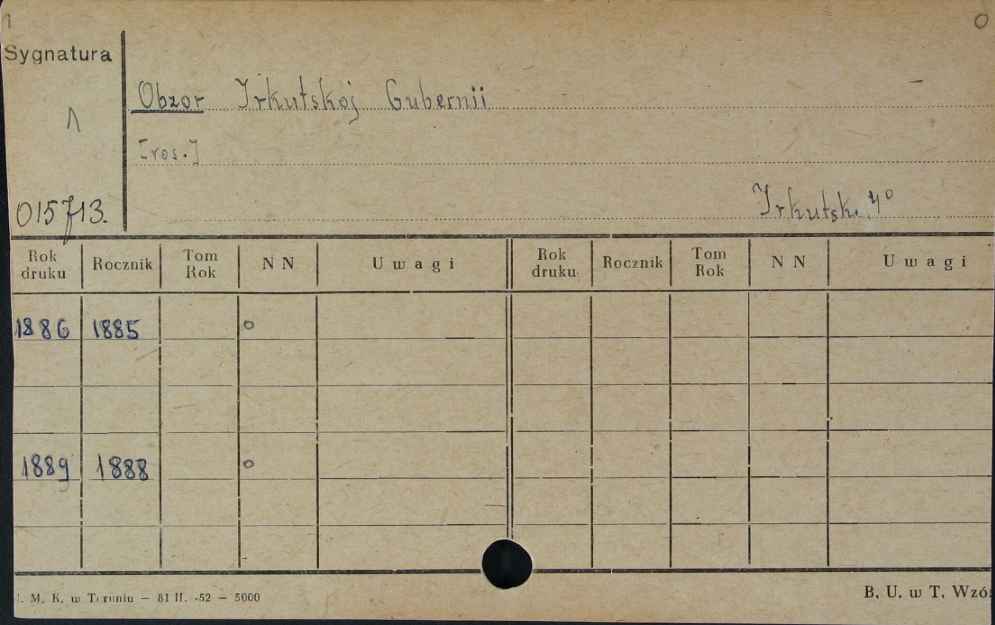 Sygnatura
Obzor Irkutskoj Gubernii
[ros.]
015713.
Irkutsk. 4°
Rok druku Rocznik Tom Rok N N Uwagi Rok druku Rocznik Tom Rok N N Uwagi
1886 1885 o
1889 1888 o
. M. K. w Toruniu — 81 II. -52 — 5000
B. U. w T. Wzó